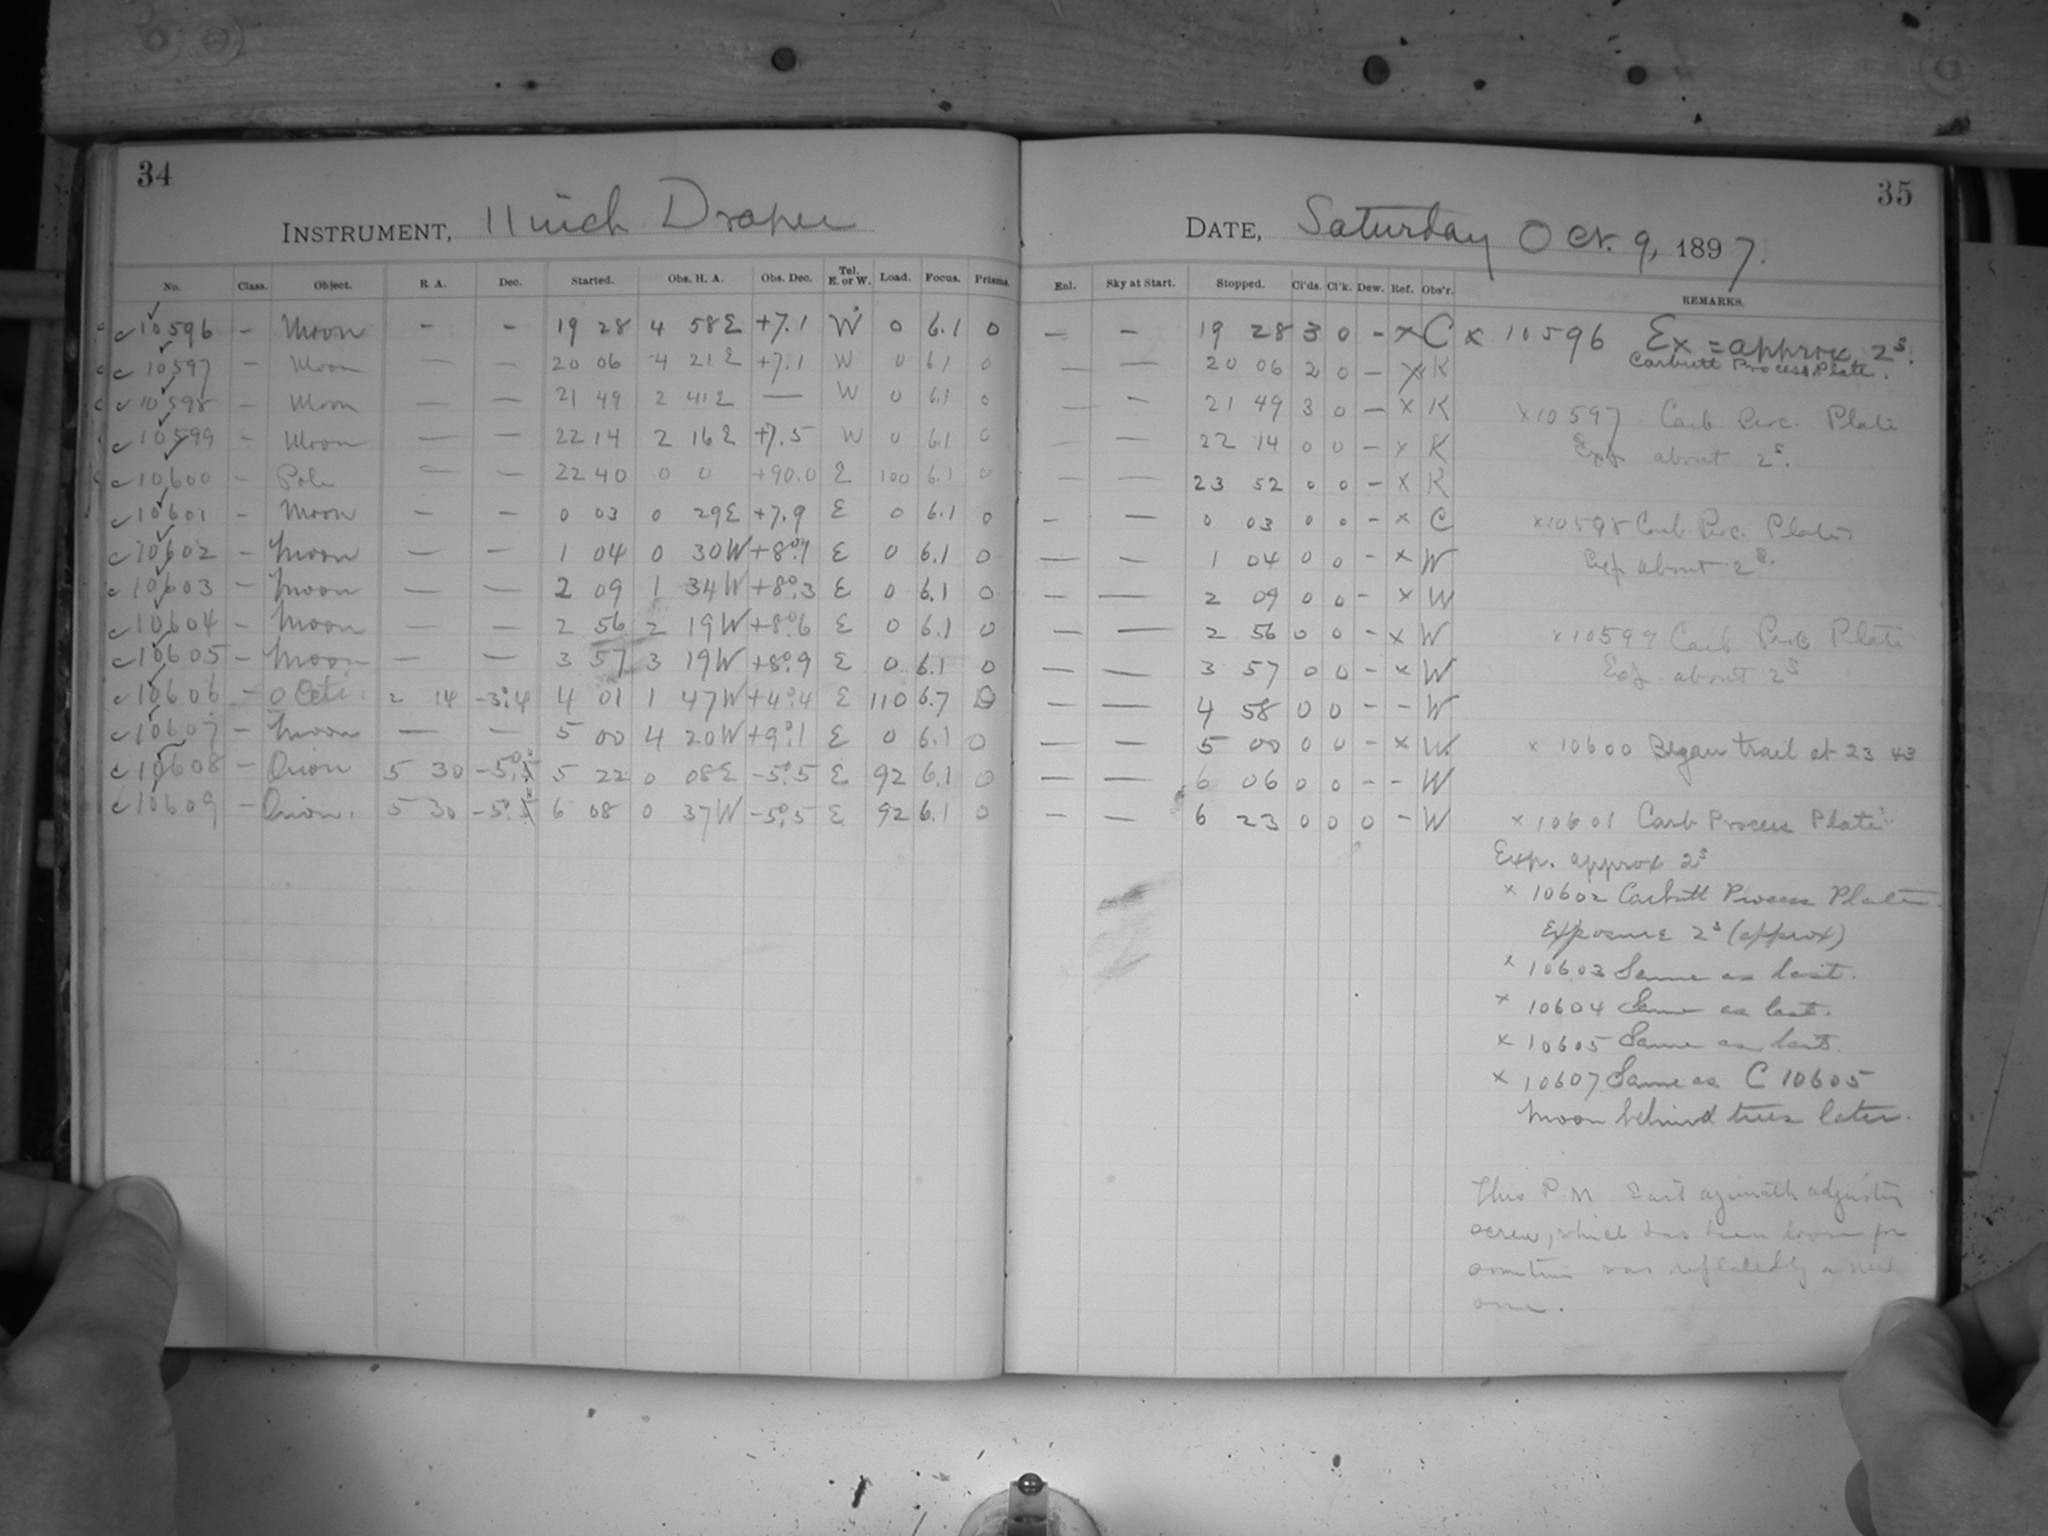 34
INSTRUMENT, 11 inch Draper
No. Class. Object. R. A. Dec. Started. Obs. H. A. Obs. Dec. Tel. E. or W. Load. Focus. Prisms.
c 10596 - Moon - - 19 28 4 58E +7.1 W 0 6.1 0
c 10597 - Moon — — 20 06 4 21E +7.1 W 0 6.1 0
c 10598 - Moon — — 21 49 2 41E — W 0 6.1 0
c 10599 - Moon — — 22 14 2 16E +7.5 W 0 6.1 0
c 10600 - Pole — — 22 40 0 0 +90.0 E 100 6.1 0
c 10601 - Moon - — 0 03 0 29E +7.9 E 0 6.1 0
c 10602 - Moon — — 1 04 0 30W +8°.1 E 0 6.1 0
c 10603 - Moon — — 2 09 1 34W +8°.3 E 0 6.1 0
c 10604 - Moon — — 2 56 2 19W +8°.6 E 0 6.1 0
c 10605 - Moon — — 3 57 3 19W +8°.9 E 0 6.1 0
c 10606 - o Ceti. 2 14 -3°.4 4 01 1 47W +4°.4 E 110 6.7
c 10607 - Moon — — 5 00 4 20W +9°.1 E 0 6.1 0
c 10608 - Orion 5 30 5 22 0 08E -5°.5 E 92 6.1 0
c 10609 - Orion. 5 30 6 08 0 37W -5°.5 E 92 6.1 0
35
DATE, Saturday Oct. 9, 1897.
Enl. Sky at Start. Stopped. Cl'ds. Cl'k. Dew. Ref. Obs'r. REMARKS.
— - 19 28 3 0 - x C
— — 20 06 2 0 - x K
— - 21 49 3 0 - x K
— — 22 14 0 0 - x K
— — 23 52 0 0 - x K
- — 0 03 0 0 - x C
— — 1 04 0 0 - x W
— — 2 09 0 0 - x W
— — 2 56 0 0 - x W
— — 3 57 0 0 - x W
— — 4 58 0 0 - - W
— — 5 00 0 0 - x W.
— — 6 06 0 0 - - W
— — 6 23 0 0 0 - W
x 10596 Ex = approx 2s.
Carbutt Process Plate.
x 10597 Carb Proc. Plate
Exp about 2s.
x 10598 Carb Proc. Plate
Exp about 2s.
x 10599 Carb Proc Plate
Exp about 2s
x 10600 Began trail at 23 43
x 10601 Carb Process Plate
Exp. approx 2s
x 10602 Carbutt Process Plate
Exposure 2s (approx)
x 10603 Same as last.
x 10604 Same as last.
x 10605 Same as last.
x 10607 Same as C 10605
Moon behind trees later.
This P.M. East azimuth adjusting
screw, which has been loose for
sometime was
one.